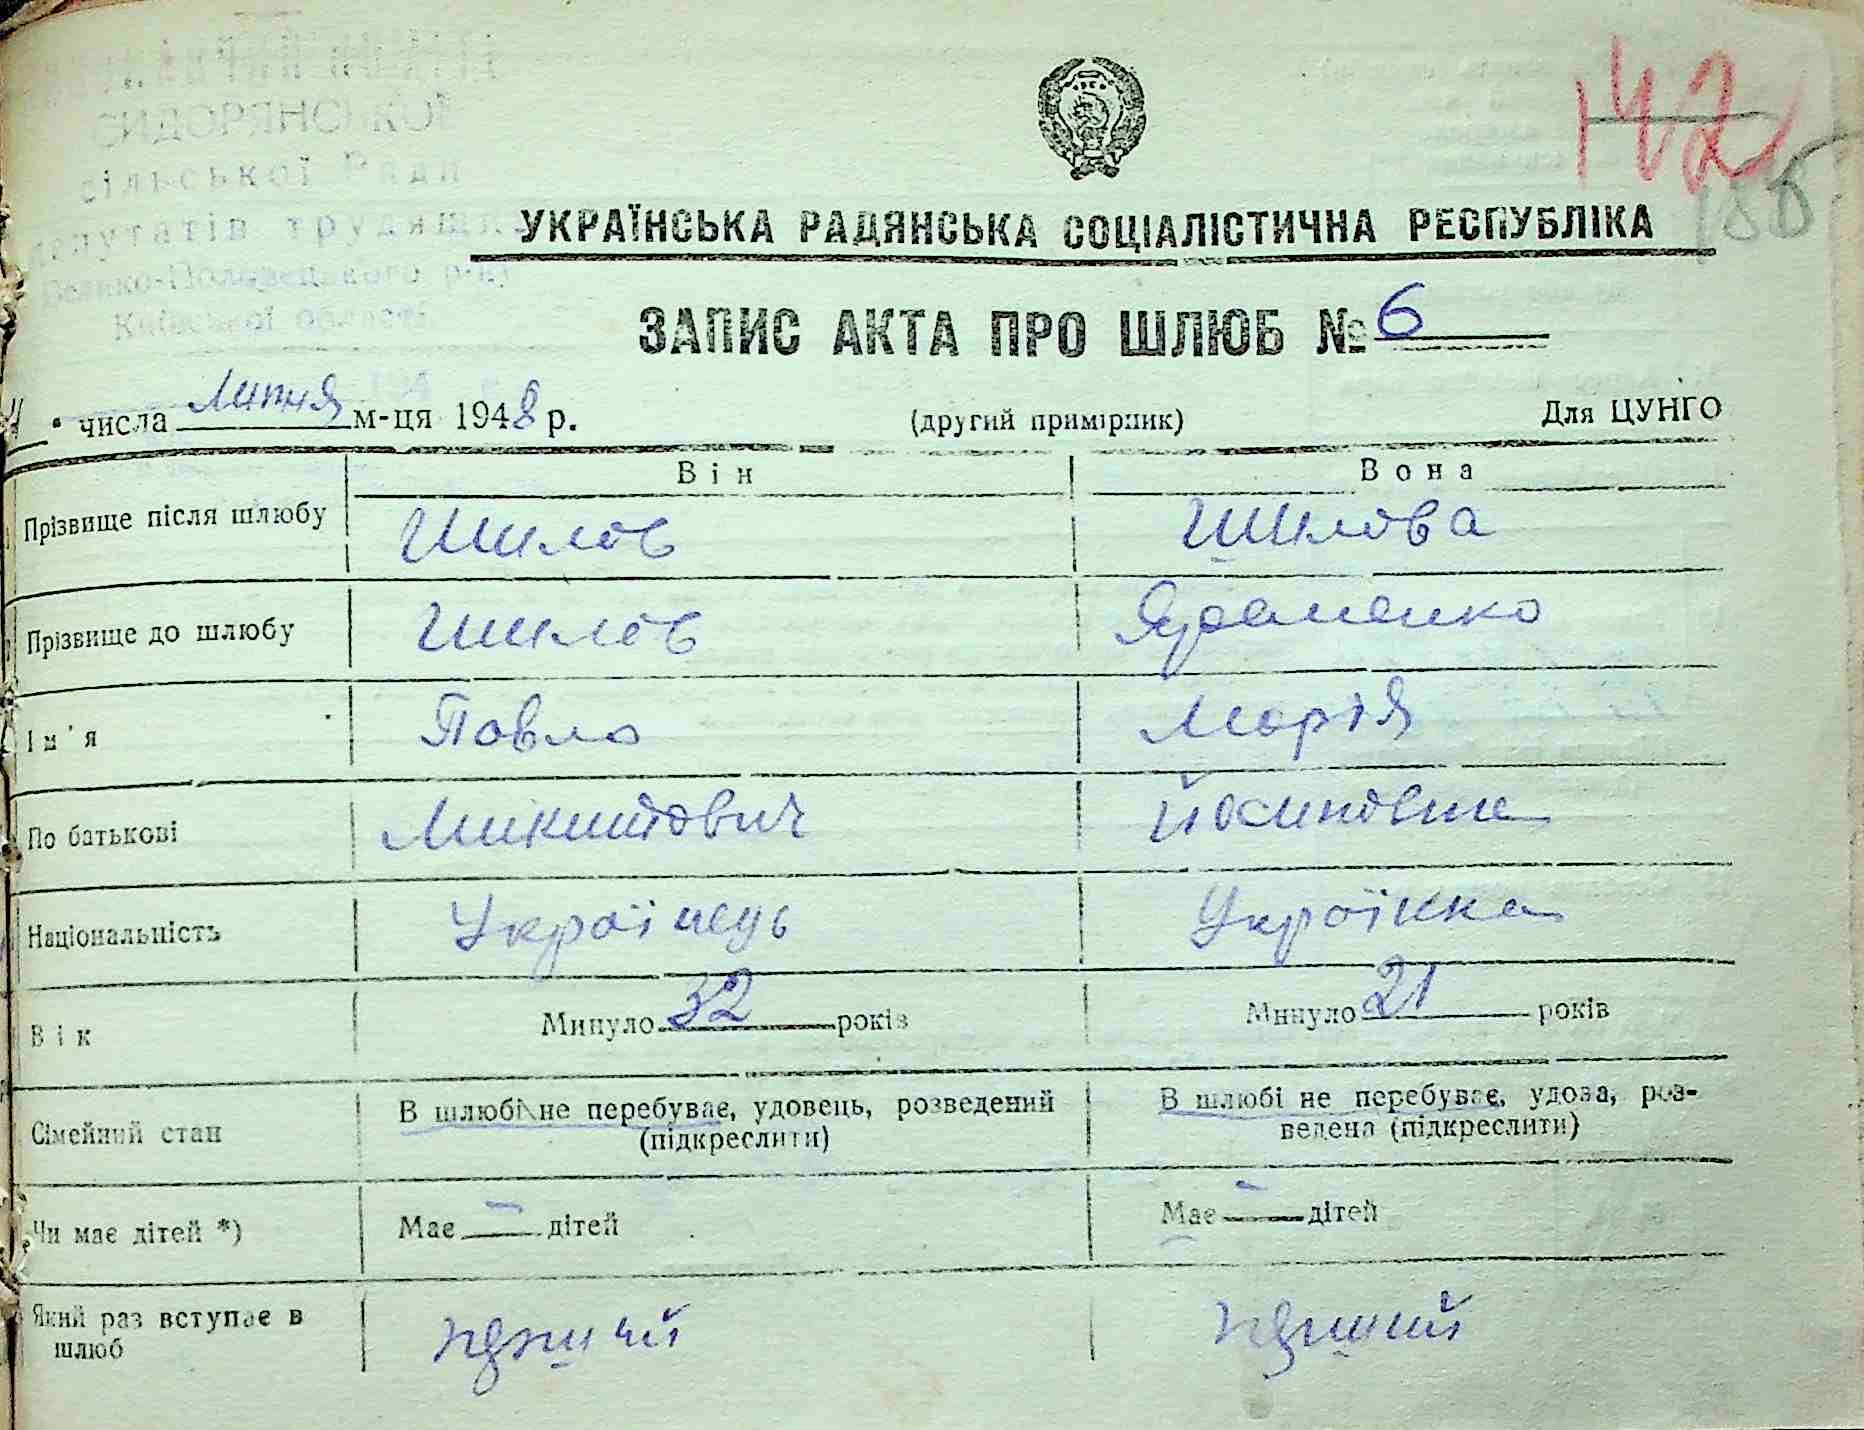 СИДОРЯНСЬКОЇ
сільської Ради
депутатів трудящих
Велико-Половецького р-ну
Київської області
142
188
УКРАЇНСЬКА РАДЯНСЬКА СОЦІАЛІСТИЧНА РЕСПУБЛІКА
ЗАПИС АКТА ПРО ШЛЮБ № 6
" числа липня м-ця 1948 р. (другий примірник) Для ЦУНГО
Він Вона
Прізвище після шлюбу Шилов Шилова
Прізвище до шлюбу Шилов
Ім'я Павло Марія
По батькові Микитович Йосиповна
Національність Українець Українка
Вік Минуло 32 років Минуло 21 років
Сімейний стан В шлюбі не перебуває, удовець, розведений (підкреслити) В шлюбі не перебуває, удова, роз-
ведена (підкреслити)
Чи має дітей *) Має — дітей Має — дітей
Який раз вступає в шлюб перший перший